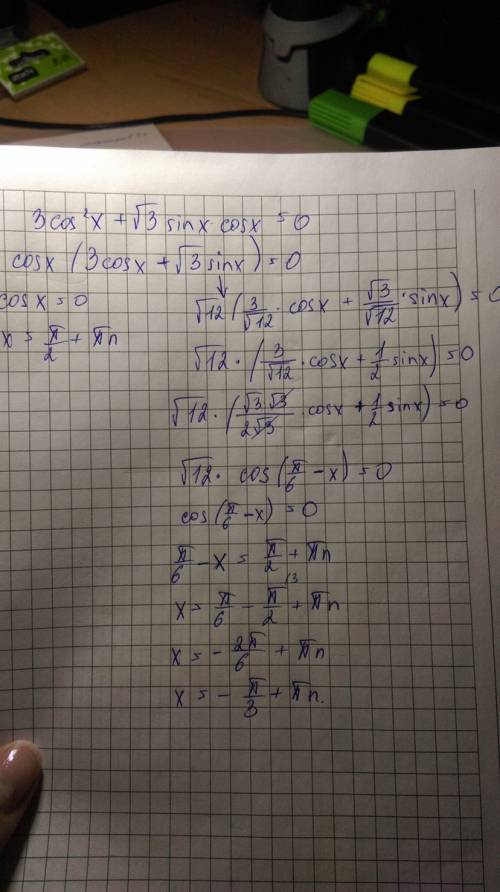 3cos²x + √3 sinx cosx = 0
cosx (3cosx + √3 sinx) = 0
cosx = 0
x = π/2 + πn
√12 (3/√12 · cosx + √3/√12 · sinx) = 0
√12 · (3/√12 · cosx + 1/2 sinx) = 0
√12 · (√3·√3/2√3 cosx + 1/2 sinx) = 0
√12 · cos(π/6 − x) = 0
cos(π/6 − x) = 0
π/6 − x = π/2 + πn
x = π/6 − π/2 ⁽³ + πn
x = − 2π/6 + πn
x = − π/3 + πn.